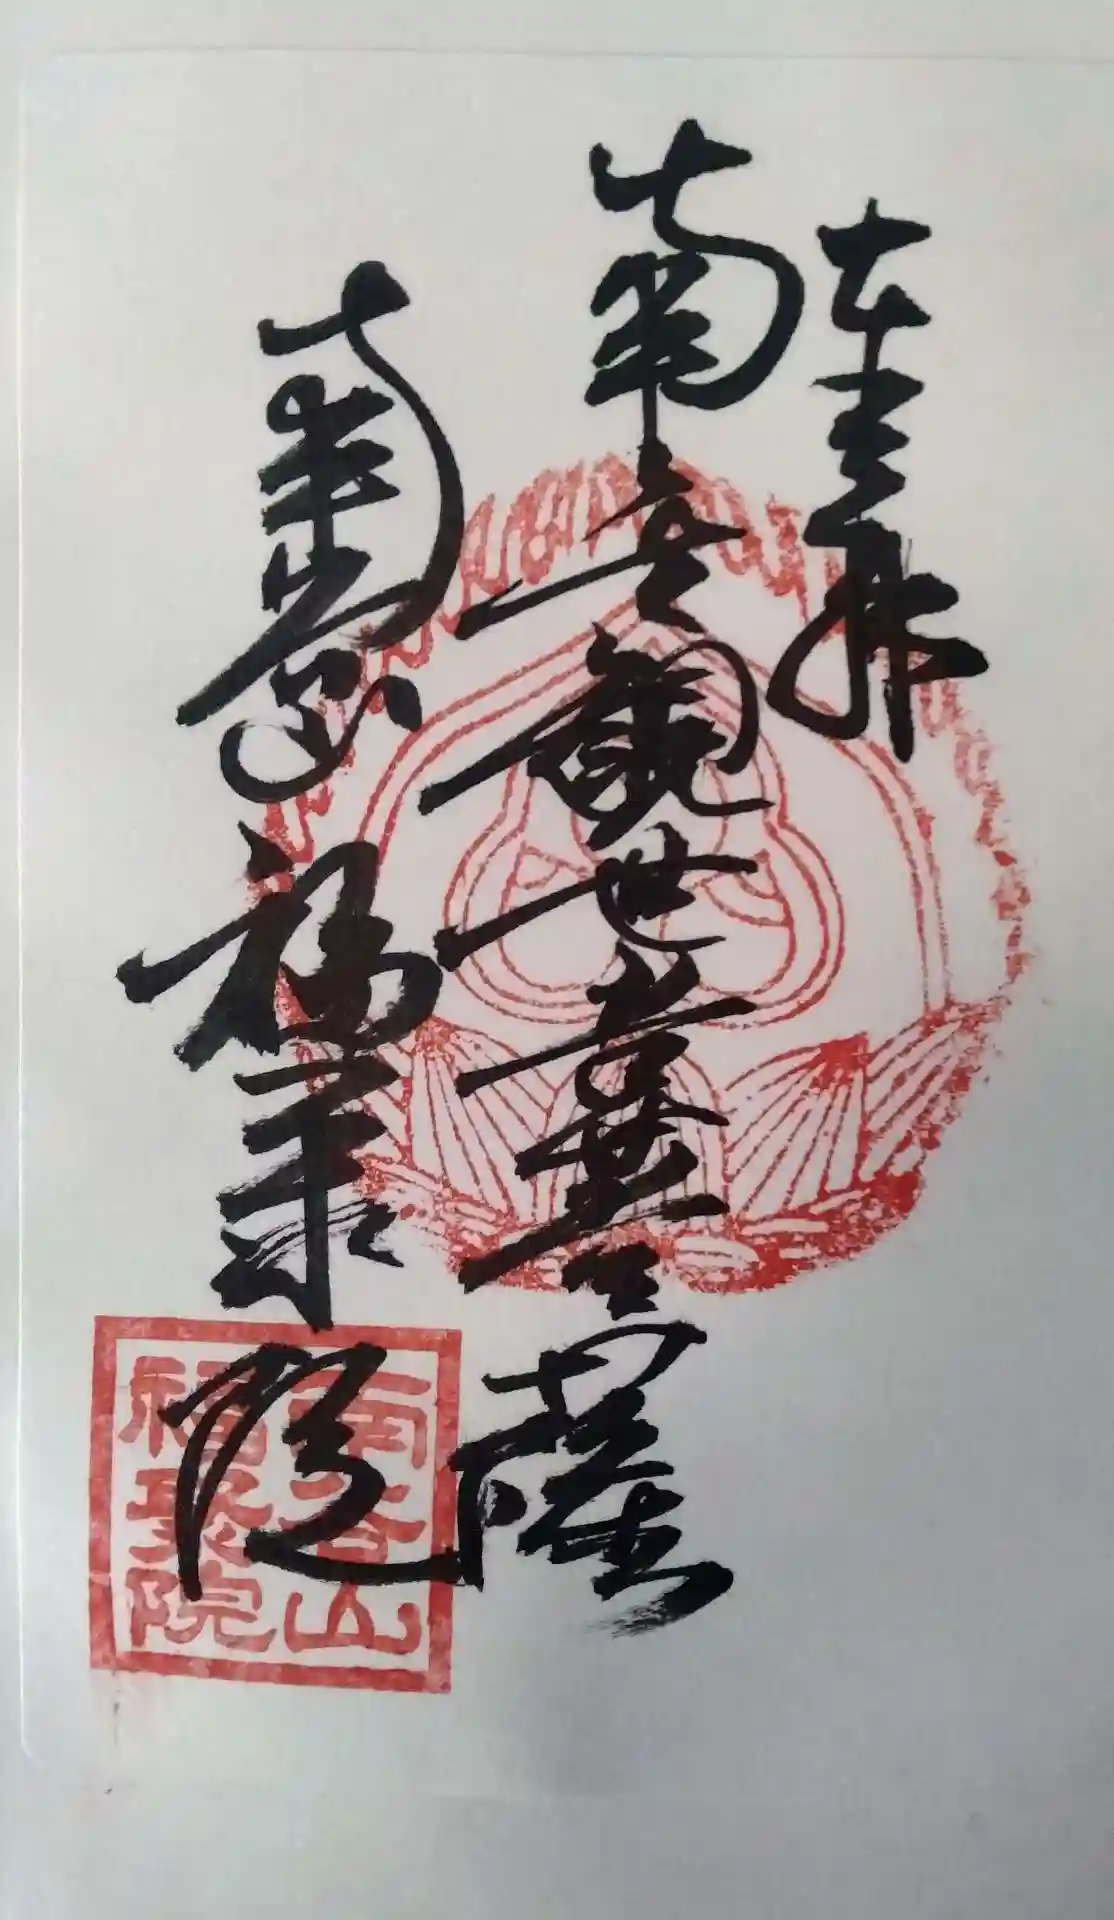 奉拝
南無観世音菩薩
南山
福聚院
南山
福聚院